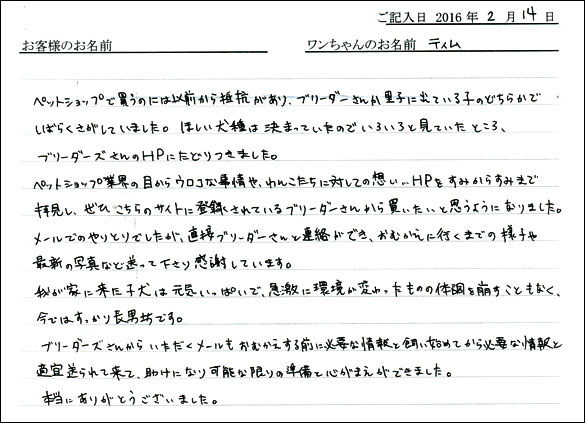 ご記入日 2016年2月14日
お客様のお名前 ワンちゃんのお名前 ティム
ペットショップで買うのには以前から抵抗があり、ブリーダーさんか里子に出ている子のどちらかで
しばらくさがしていました。ほしい犬種は決まっていたのでいろいろと見ていたところ、
ブリーダーズさんのHPにたどりつきました。
ペットショップ業界の目からウロコな事情や、わんこたちに対しての想い…HPをすみからすみまで
拝見し、ぜひこちらのサイトに登録されているブリーダーさんから買いたいと思うようになりました。
メールでのやりとりでしたが、直接ブリーダーさんと連絡ができ、おむかえに行くまでの様子や
最新の写真など送って下さり感謝しています。
我が家に来た子犬は元気いっぱいで、急激に環境が変わったものの体調を崩すこともなく、
今ではすっかり長男坊です。
ブリーダーズさんからいただくメールもおむかえする前に必要な情報と飼い始めてから必要な情報と
適宜送られて来て、助けになり可能な限りの準備と心がまえができました。
本当にありがとうございました。